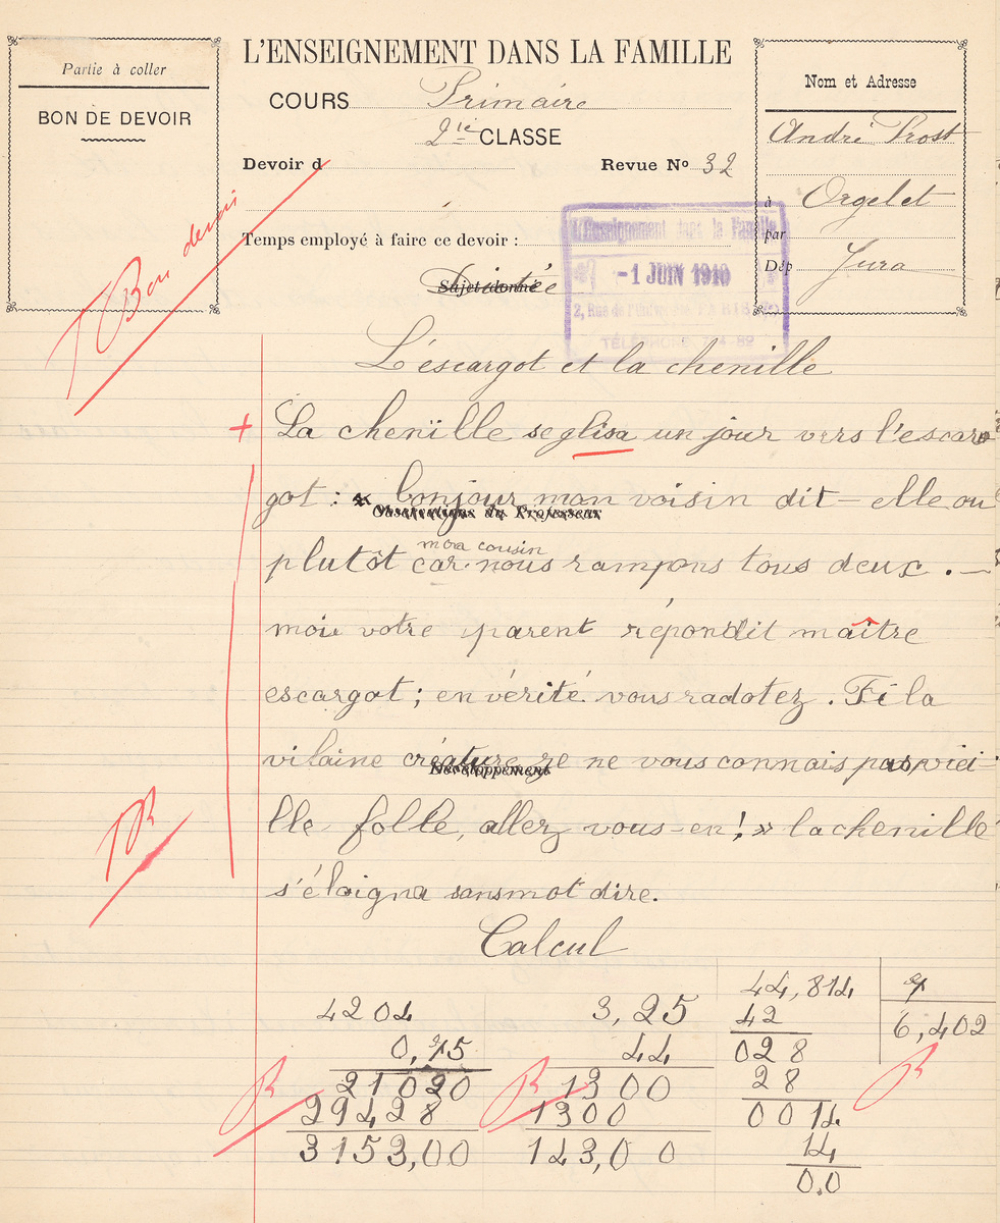 Partie à coller
BON DE DEVOIR
L'ENSEIGNEMENT DANS LA FAMILLE
COURS Primaire
2ie CLASSE
Devoir d
Revue No 32
Temps employé à faire ce devoir :
Sujet donné
Dictée
Nom et Adresse
André Prost
à Orgelet
par
Dép Jura
L'Enseignement dans la Famille
-1 JUIN 1910
2, Rue de PARIS
TÉLÉPHONE
T Bon devoir
L'éscargot et la chenille
La chenïlle se glisa un jour vers l'escar
got : « bonjour mon voisin dit-elle ou
Observations du Professeur
mon cousin
plutôt car nous rampons tous deux . —
moi votre parent répondit maître
escargot ; en vérité vous radotez . Fi la
vilaine créature je ne vous connais pas viei
Développement
lle folle, allez vous-en ! » la chenille
s'éloigna sans mot dire.
TB
Calcul
4204
0,75
21020
29428
3153,00
B
3,25
44
1300
1300
143,00
B
44,814 7
42 6,402
028
28
0014
14
0.0
B